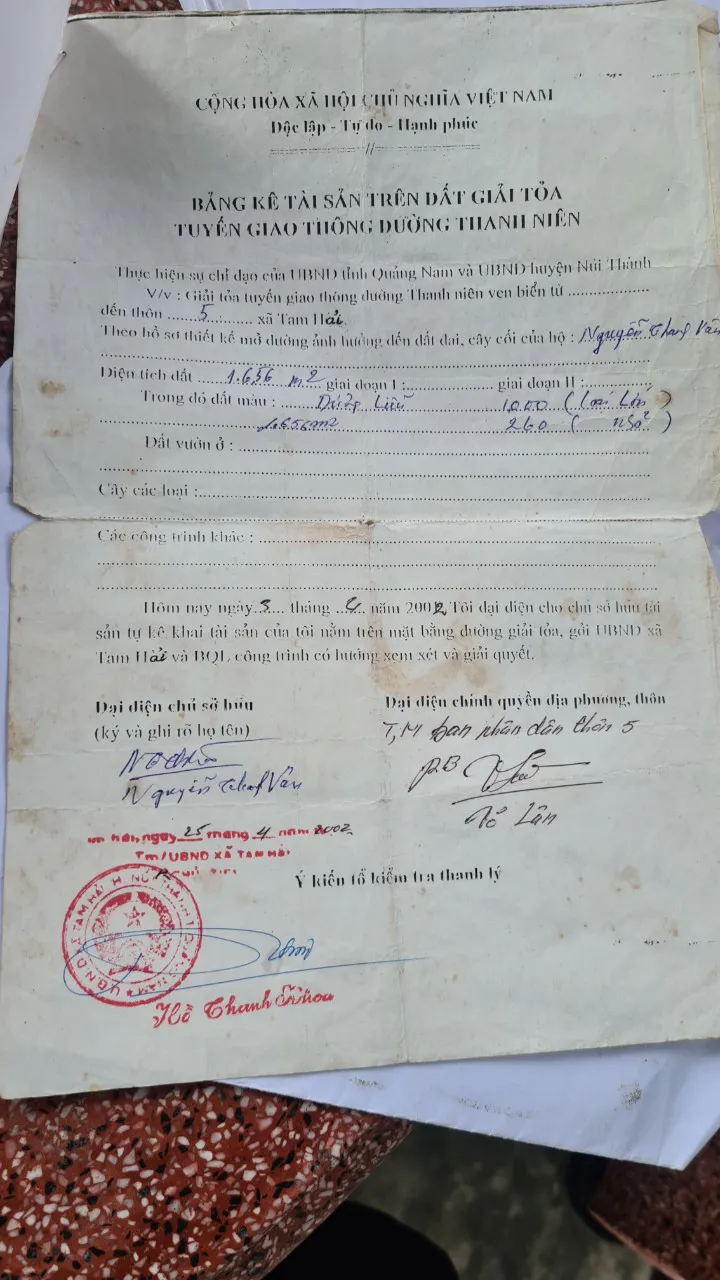 CỘNG HÒA XÃ HỘI CHỦ NGHĨA VIỆT NAM
Độc lập - Tự do - Hạnh phúc
//
BẢNG KÊ TÀI SẢN TRÊN ĐẤT GIẢI TỎA
TUYẾN GIAO THÔNG ĐƯỜNG THANH NIÊN
Thực hiện sự chỉ đạo của UBND tỉnh Quảng Nam và UBND huyện Núi Thành
V/v : Giải tỏa tuyến giao thông đường Thanh niên ven biển từ ....................
đến thôn ........5........... xã Tam Hải.
Theo hồ sơ thiết kế mở đường ảnh hưởng đến đất đai, cây cối của hộ : Nguyễn Thanh Vân
Diện tích đất ....1.656 m2 giai đoạn I :..................... giai đoạn II :................
Trong đó đất màu : Dương Liễu 1000 (loại lớn)
1.656m2 260 ( nhỏ )
Đất vườn ở :
Cây các loại :
Các công trình khác :
Hôm nay ngày 3 tháng 4 năm 2002, Tôi đại diện cho chủ sở hữu tài
sản tự kê khai tài sản của tôi nằm trên mặt bằng đường giải tỏa, gởi UBND xã
Tam Hải và BQL công trình có hướng xem xét và giải quyết.
Đại diện chủ sở hữu
(ký và ghi rõ họ tên)
Nguyễn Thanh Vân
Đại diện chính quyền địa phương, thôn
T,M ban nhân dân thôn 5
P.B
Võ Lân
ngày 25 tháng 4 năm 2002
Tm/UBND XÃ TAM HẢI
Ý kiến tổ kiểm tra thanh lý
U.B.N.D XÃ TAM HẢI H. NÚI THÀNH T. QUẢNG NAM
Hồ Thanh Khoa